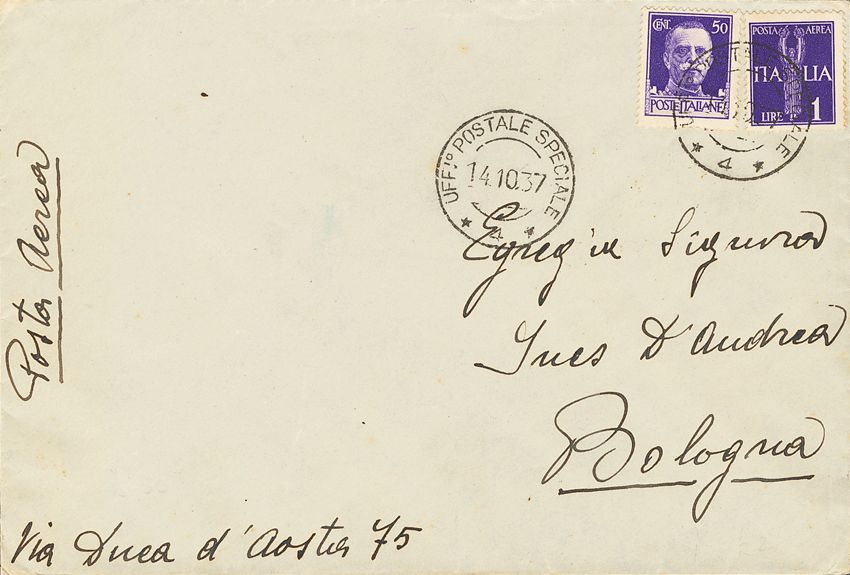 CENT. 50
POSTE ITALIANE
POSTA AEREA
ITALIA
LIRE 1
UFF.º POSTALE SPECIALE
14.10.37
* 4 *
* 4 *
Posta Aerea
Egregia Signora
Ines D'Andrea
Bologna
Via Duca d'Aosta 75